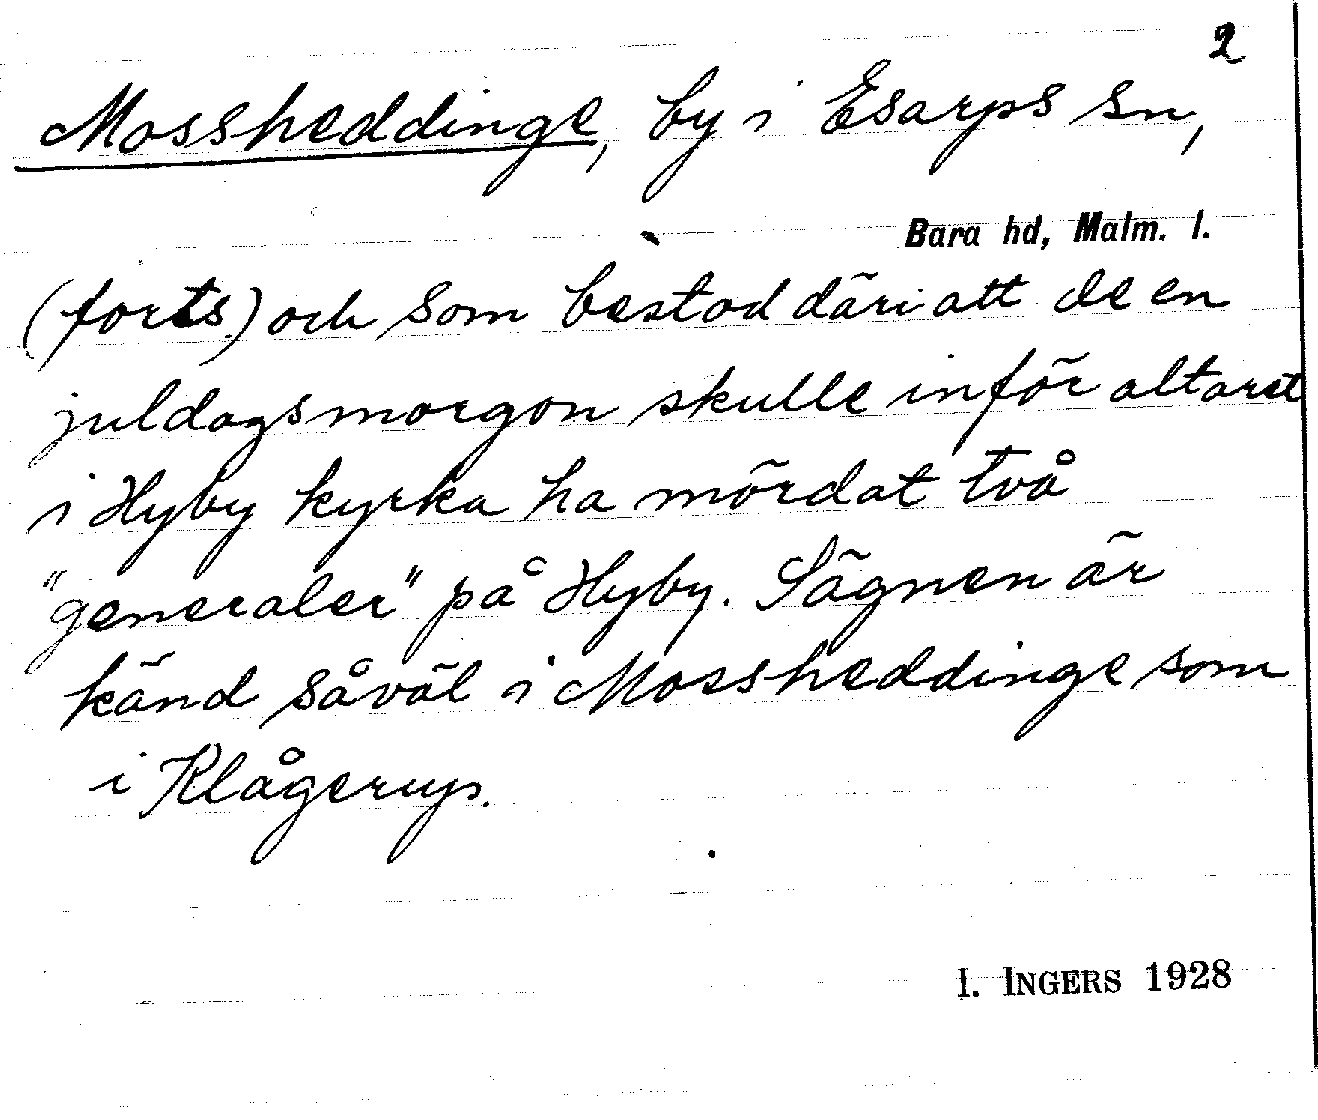 2
Mossheddinge, by i Esarps sn,
Bara hd, Malm. l.
(forts.) och som bestod däri att de en
juldagsmorgon skulle inför altaret
i Hyby kyrka ha mördat två
"generaler" på Hyby. Sägnen är
känd såväl i Mossheddinge som
i Klågerup.
I. INGERS 1928